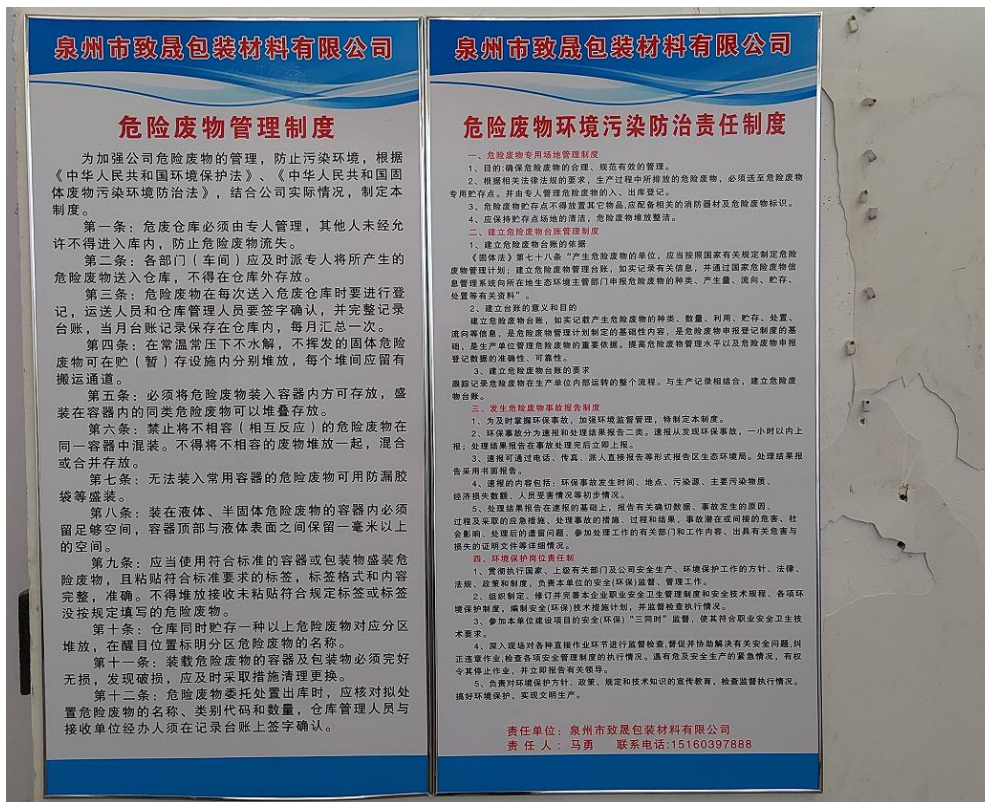 泉州市致晟包装材料有限公司
危险废物管理制度
为加强公司危险废物的管理，防止污染环境，根据
《中华人民共和国环境保护法》、《中华人民共和国固
体废物污染环境防治法》，结合公司实际情况，制定本
制度。
第一条：危废仓库必须由专人管理，其他人未经允
许不得进入库内，防止危险废物流失。
第二条：各部门（车间）应及时派专人将所产生的
危险废物送入仓库，不得在仓库外存放。
第三条：危险废物在每次送入危废仓库时要进行登
记，运送人员和仓库管理人员要签字确认，并完整记录
台账，当月台账记录保存在仓库内，每月汇总一次。
第四条：在常温常压下不水解，不挥发的固体危险
废物可在贮（暂）存设施内分别堆放，每个堆间应留有
搬运通道。
第五条：必须将危险废物装入容器内方可存放，盛
装在容器内的同类危险废物可以堆叠存放。
第六条：禁止将不相容（相互反应）的危险废物在
同一容器中混装。不得将不相容的废物堆放一起，混合
或合并存放。
第七条：无法装入常用容器的危险废物可用防漏胶
袋等盛装。
第八条：装在液体、半固体危险废物的容器内必须
留足够空间，容器顶部与液体表面之间保留一毫米以上
的空间。
第九条：应当使用符合标准的容器或包装物盛装危
险废物，且粘贴符合标准要求的标签，标签格式和内容
完整，准确。不得堆放接收未粘贴符合规定标签或标签
没按规定填写的危险废物。
第十条：仓库同时贮存一种以上危险废物对应分区
堆放，在醒目位置标明分区危险废物的名称。
第十一条：装载危险废物的容器及包装物必须完好
无损，发现破损，应及时采取措施清理更换。
第十二条：危险废物委托处置出库时，应核对拟处
置危险废物的名称、类别代码和数量，仓库管理人员与
接收单位经办人须在记录台账上签字确认。
泉州市致晟包装材料有限公司
危险废物环境污染防治责任制度
一、危险废物专用场地管理制度
1、目的:确保危险废物的合理、规范有效的管理。
2、根据相关法律法规的要求，生产过程中所排放的危险废物，必须送至危险废物
专用贮存点。并由专人管理危险废物的入、出库登记。
3、危险废物贮存点不得放置其它物品,应配备相关的消防器材及危险废物标识。
4、应保持贮存点场地的清洁，危险废物堆放整洁。
二、建立危险废物台账管理制度
1、建立危险废物台账的依据
《固体法》第七十八条“产生危险废物的单位，应当按照国家有关规定制定危险
废物管理计划；建立危险废物管理台账，如实记录有关信息，并通过国家危险废物信
息管理系统向所在地生态环境主管部门申报危险废物的种类、产生量、流向、贮存、
处置等有关资料”。
2、建立台账的意义和目的
建立危险废物台账，如实记载产生危险废物的种类、数量、利用、贮存、处置、
流向等信息，是危险废物管理计划制定的基础性内容，是危险废物申报登记制度的基
础，是生产单位管理危险废物的重要依据。提高危险废物管理水平以及危险废物申报
登记数据的准确性、可靠性。
3、建立危险废物台账的要求
跟踪记录危险废物在生产单位内部运转的整个流程。与生产记录相结合，建立危险废
物台账。
三、发生危险废物事故报告制度
1、为及时掌握环保事故，加强环境监督管理，特制定本制度。
2、环保事故分为速报和处理结果报告二类。速报从发现环保事故，一小时以内上
报；处理结果报告在事故处理完后立即上报。
3、速报可通过电话、传真、派人直接报告等形式报告区生态环境局。处理结果报
告采用书面报告。
4、速报的内容包括：环保事故发生时间、地点、污染源、主要污染物质、
经济损失数额、人员受害情况等初步情况。
5、处理结果报告在速报的基础上，报告有关确切数据、事故发生的原因、
过程及采取的应急措施、处理事故的措施、过程和结果，事故潜在或间接的危害、社
会影响、处理后的遗留问题、参加处理工作的有关部门和工作内容、出具有关危害与
损失的证明文件等详细情况。
四、环境保护岗位责任制
1、贯彻执行国家、上级有关部门及公司安全生产、环境保护工作的方针、法律、
法规、政策和制度，负责本单位的安全(环保)监督、管理工作。
2、组织制定、修订并完善本企业职业安全卫生管理制度和安全技术规程、各项环
境保护制度，编制安全(环保)技术措施计划，并监督检查执行情况。
3、参加本单位建设项目的安全(环保)“三同时”监督，使其符合职业安全卫生技
术要求。
4、深入现场对各种直接作业环节进行监督检查,督促并协助解决有关安全问题,纠
正违章作业,检查各项安全管理制度的执行情况。遇有危及安全生产的紧急情况，有权
令其停止作业，并立即报告有关领导。
5、负责对环境保护方针、政策、规定和技术知识的宣传教育，检查监督执行情况。
搞好环境保护，实现文明生产。
责任单位：泉州市致晟包装材料有限公司
责 任 人：马勇 联系电话:15160397888